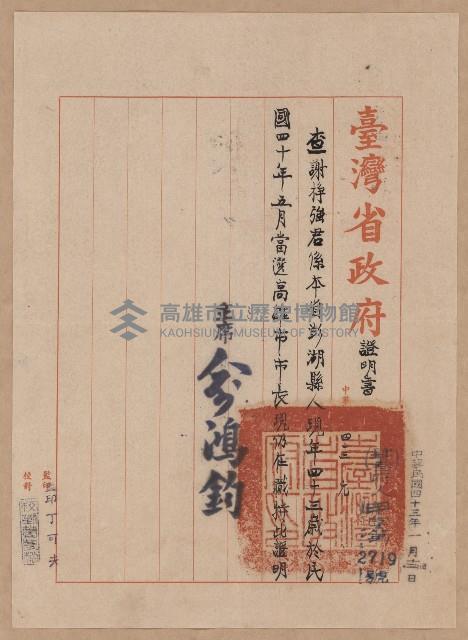 臺灣省政府證明書
中華民國四十三年一月十二日
2719號
查謝掙強君係本省澎湖縣人現年四十三歲於民
國四十年五月當選高雄市市長現仍在職特此證明
主席
俞鴻鈞
監印
校對
丁可夫
高雄市立歷史博物館
KAOHSIUNG MUSEUM OF HISTORY